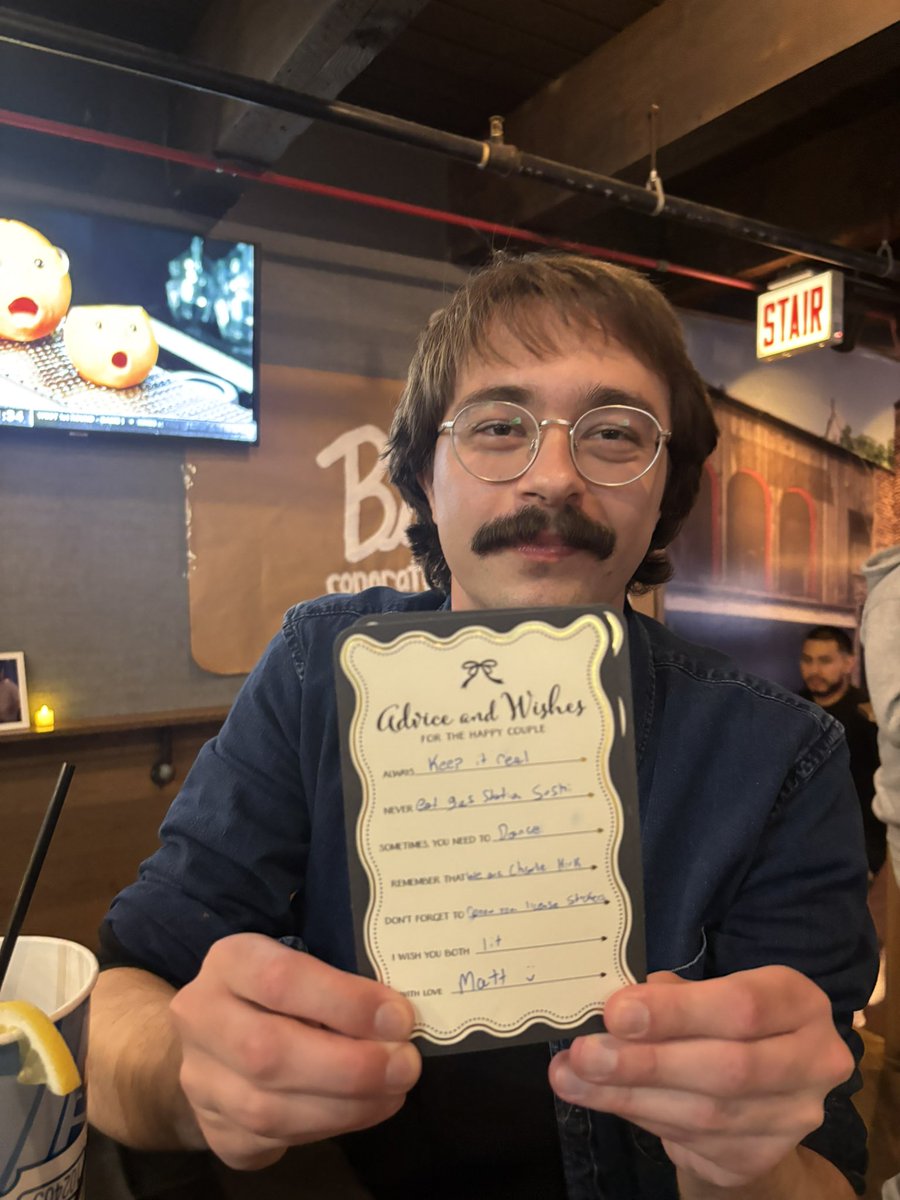 STAIR
B
congrat
Advice and Wishes
FOR THE HAPPY COUPLE
ALWAYS Keep it real
NEVER eat gas Station Sushi
SOMETIMES, YOU NEED TO Dance
REMEMBER THAT We are Charlie Kirk
DON'T FORGET TO license stickers
I WISH YOU BOTH lit
WITH LOVE Matt